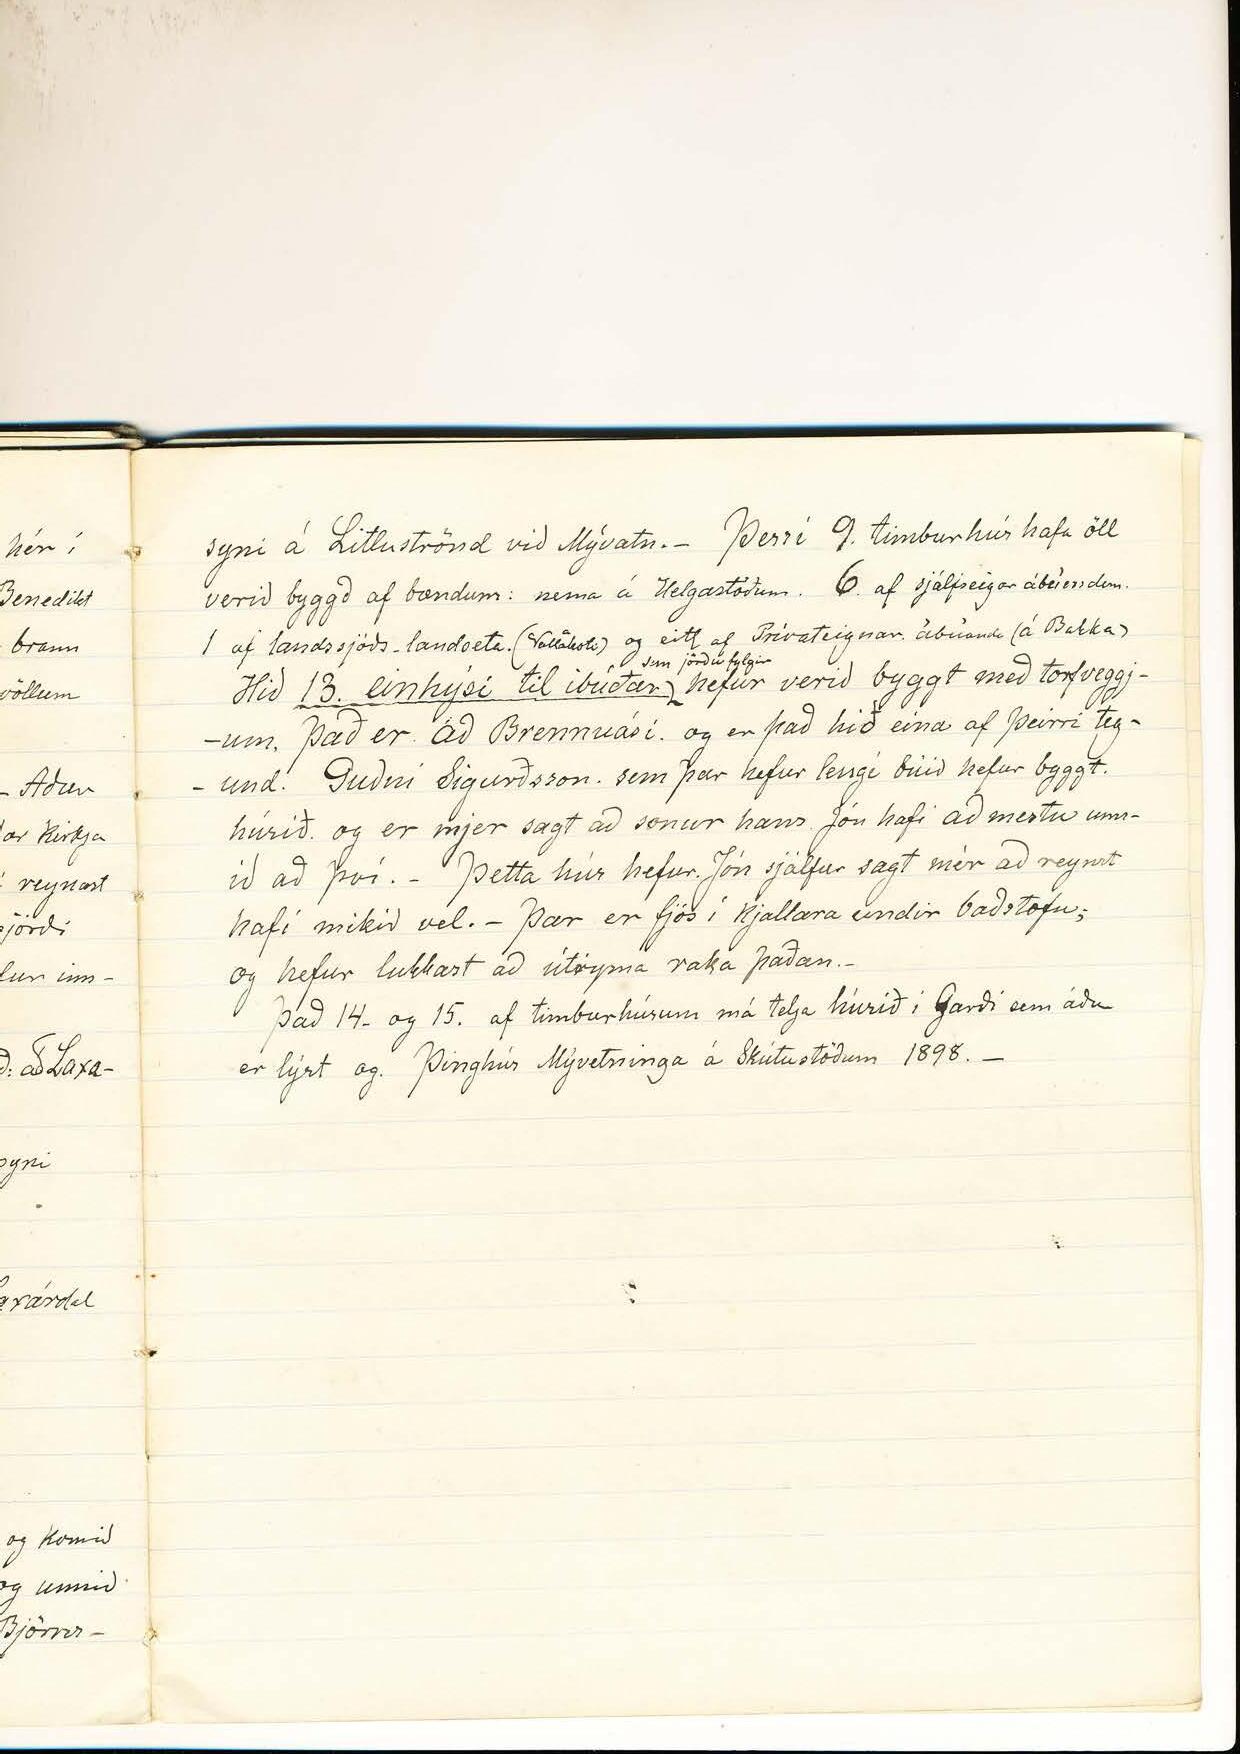 hér í
Benedikt
brann
völlum
- Áður
Kirkja
reynast
jörði
inn-
að Laxa-
syni
Laxárdal
og komið
og unnið
Björns-
syni á Litluströnd við Mývatn. - Þessi 9. timburhús hafa öll
verið byggð af bændum: nema á Helgastöðum. 6. af sjálfseignar ábúendum.
1 af landssjóðs-landseta. (Vallakoti) og eitt af Privateignar. ábúanda (á Bakka)
sem jörðu fylgir
Hið 13. einhýsi til íbúðar, hefur verið byggt með torfveggj-
-um. Það er að Brennuási. og er það hið eina af þeirri teg-
- und. Guðni Sigurðsson. sem þar hefur lengi búið hefur byggt.
húsið. og er mjer sagt að sonur hans Jón hafi að mestu unn-
ið að því. - Þetta hús hefur. Jón sjálfur sagt mér að reynst
hafi mikið vel. - Þar er fjós í kjallara undir baðstofu;
og hefur lukkast að útrýma raka þaðan. -
Það 14. og 15. af timburhúsum má telja húsið í Garði sem áður
er lýst og. Þinghús Mývetninga á Skútustöðum 1898. -